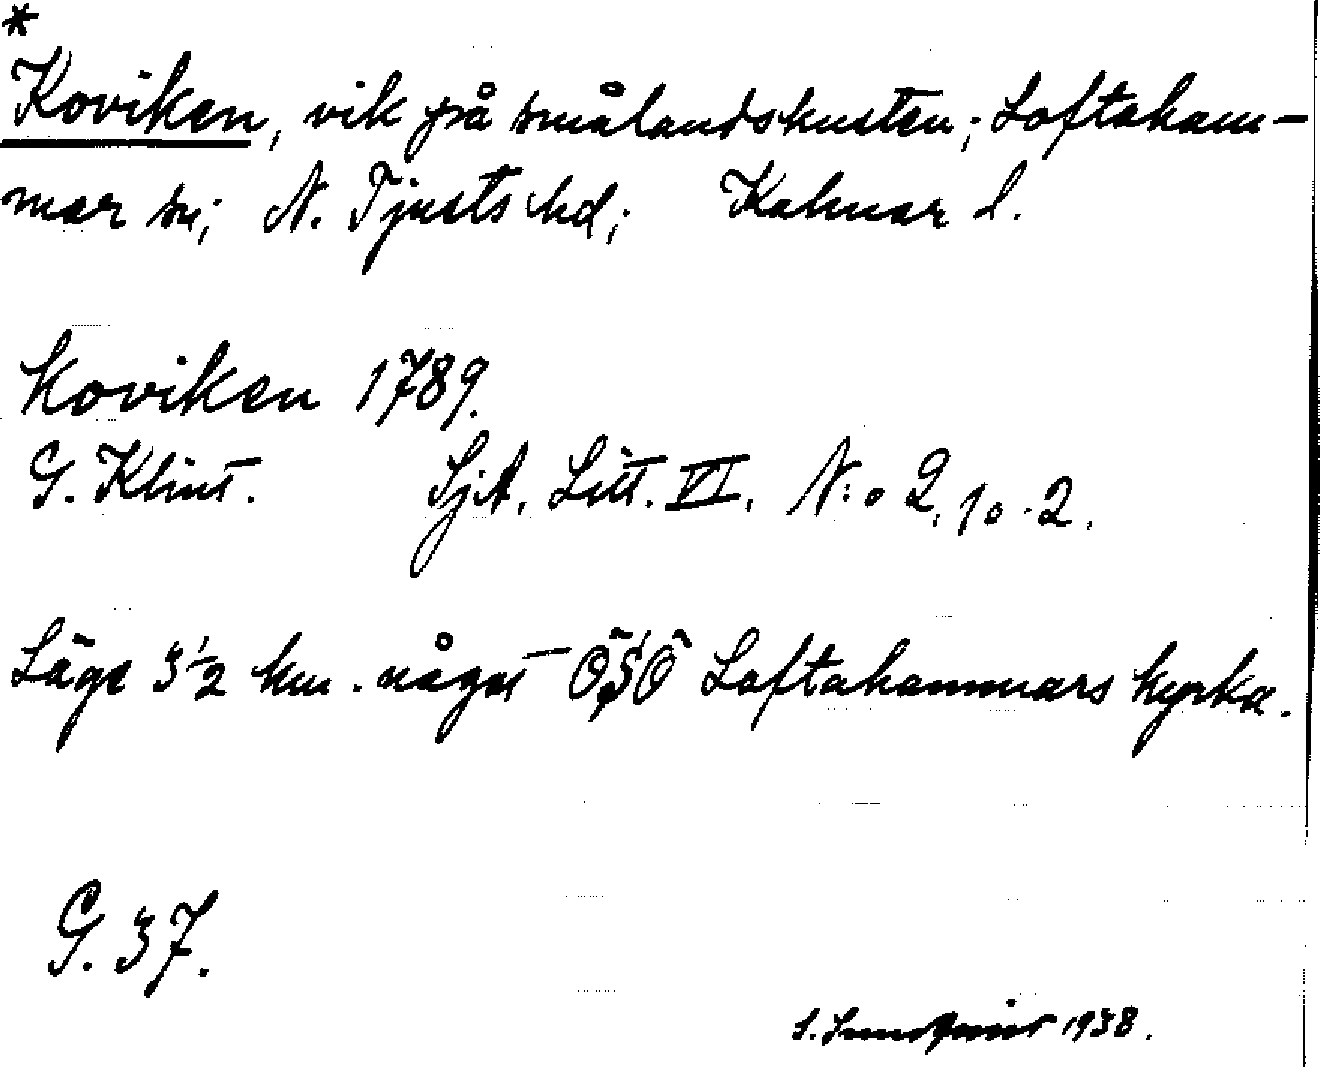 *
Koviken, vik på smålandskusten; Loftaham-
mar sn; N. Tjusts hd; Kalmar l.
Koviken 1789.
G. Klint. SjA. Litt. VI. N:o 2. 10.2.
Läge 3 1/2 km. något ÖSÖ Loftahammars kyrka.
G. 37.
S. Sundqvist 1938.